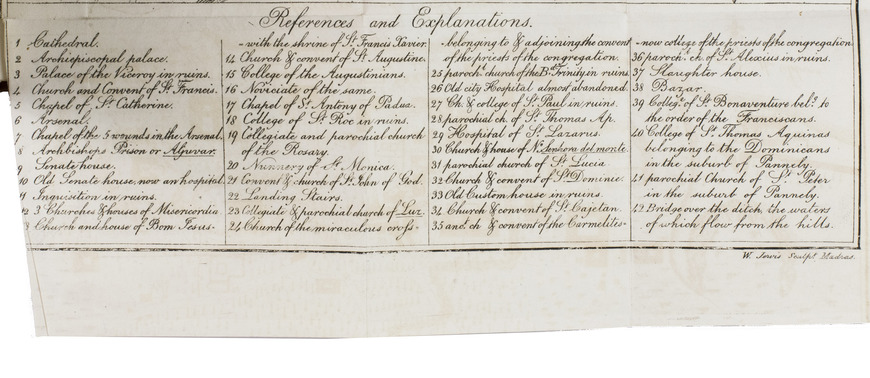 References and Explanations.
1 Cathedral.
2 Archiepiscopal palace.
3 Palace of the Viceroy in ruins.
4 Church and Convent of St. Francis.
5 Chapel of St. Catherine.
6 Arsenal.
7 Chapel of the 5 wounds in the Arsenal.
8 Archbishops Prison or Aljuvar.
9 Senate house.
10 Old Senate house, now an hospital.
11 Inquisition in ruins.
12 3 Churches & houses of Misericordia
Church and house of Bom Jesus-
-with the shrine of St. Francis Xavier.
14 Church & convent of St. Augustine.
15 College of the Augustinians.
16 Noviciate of the same.
17 Chapel of St. Antony of Padua.
18 College of St. Roc in ruins.
19 Collegiate and parochial church
of the Rosary.
20 Nunnery of St. Monica.
21 Convent & church of St. John of God.
22 Landing Stairs.
23 Collegiate & parochial church of Luz.
24 Church of the miraculous cross-
-belonging to & adjoining the convent
of the priests of the congregation.
25 paroch. church of the Bd. Trinity in ruins.
26 Old city Hospital almost abandoned.
27 Ch. & college of St. Paul in ruins.
28 parochial ch. of St. Thomas Ap.
29 Hospital of St. Lazarus.
30 Church & house of Na. Senhora del monte.
31 parochial church of St. Lucia
32 Church & convent of St. Dominic.
33 Old Custom house in ruins.
34 Church & convent of St. Cajetan.
35 anor. ch & convent of the Carmelites-
-now college of the priests of the congregation.
36 paroch. ch. of St. Alexius in ruins.
37 Slaughter house.
38 Bazar.
39 College of St. Bonaventure belg. to
the order of the Franciscans.
40 College of St. Thomas Aquinas
belonging to the Dominicans
in the suburb of Pannely.
41 parochial Church of St. Peter
in the suburb of Pannely.
42 Bridge over the ditch, the waters
of which flow from the hills.
W. Sculpt. Madras.